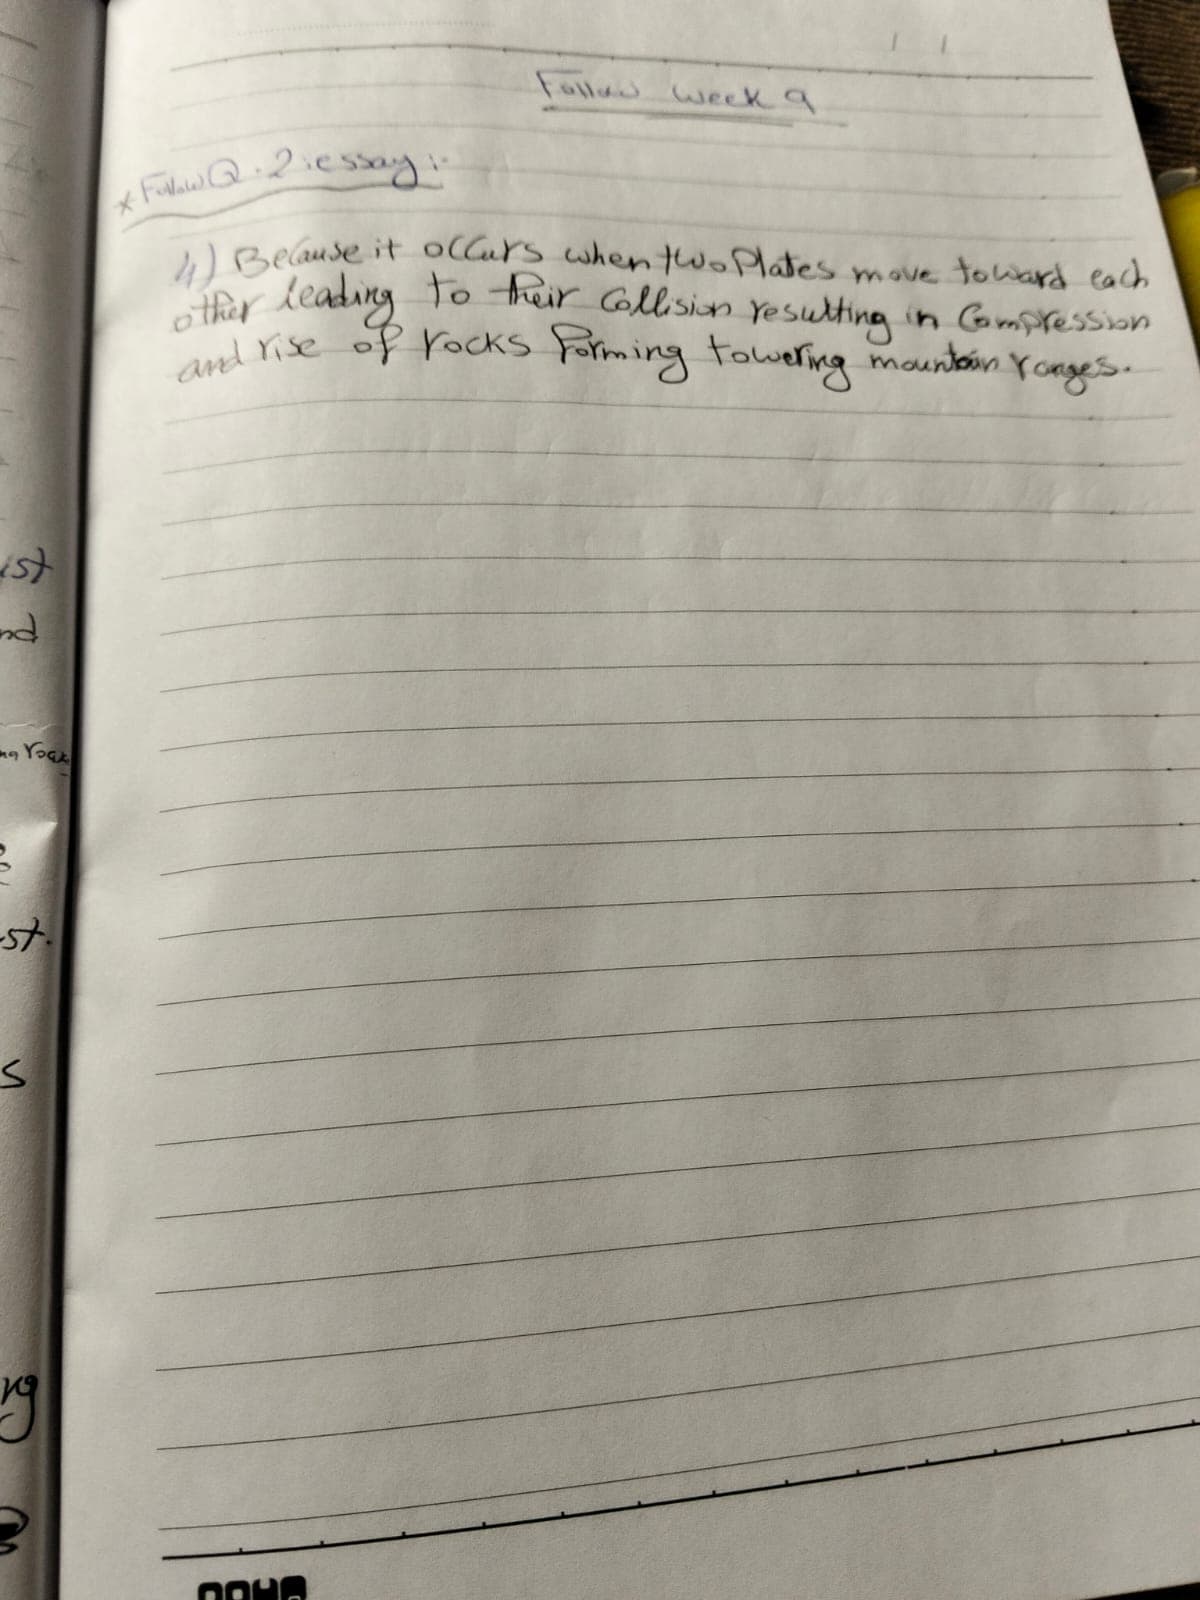 Follow week 9
* Follow Q.2:essay:-
4) Because it occurs when two Plates move toward each
other leading to their Collision resulting in Compression
and rise of rocks Forming towering mountain ranges.
ist
nd
st.
s
ng